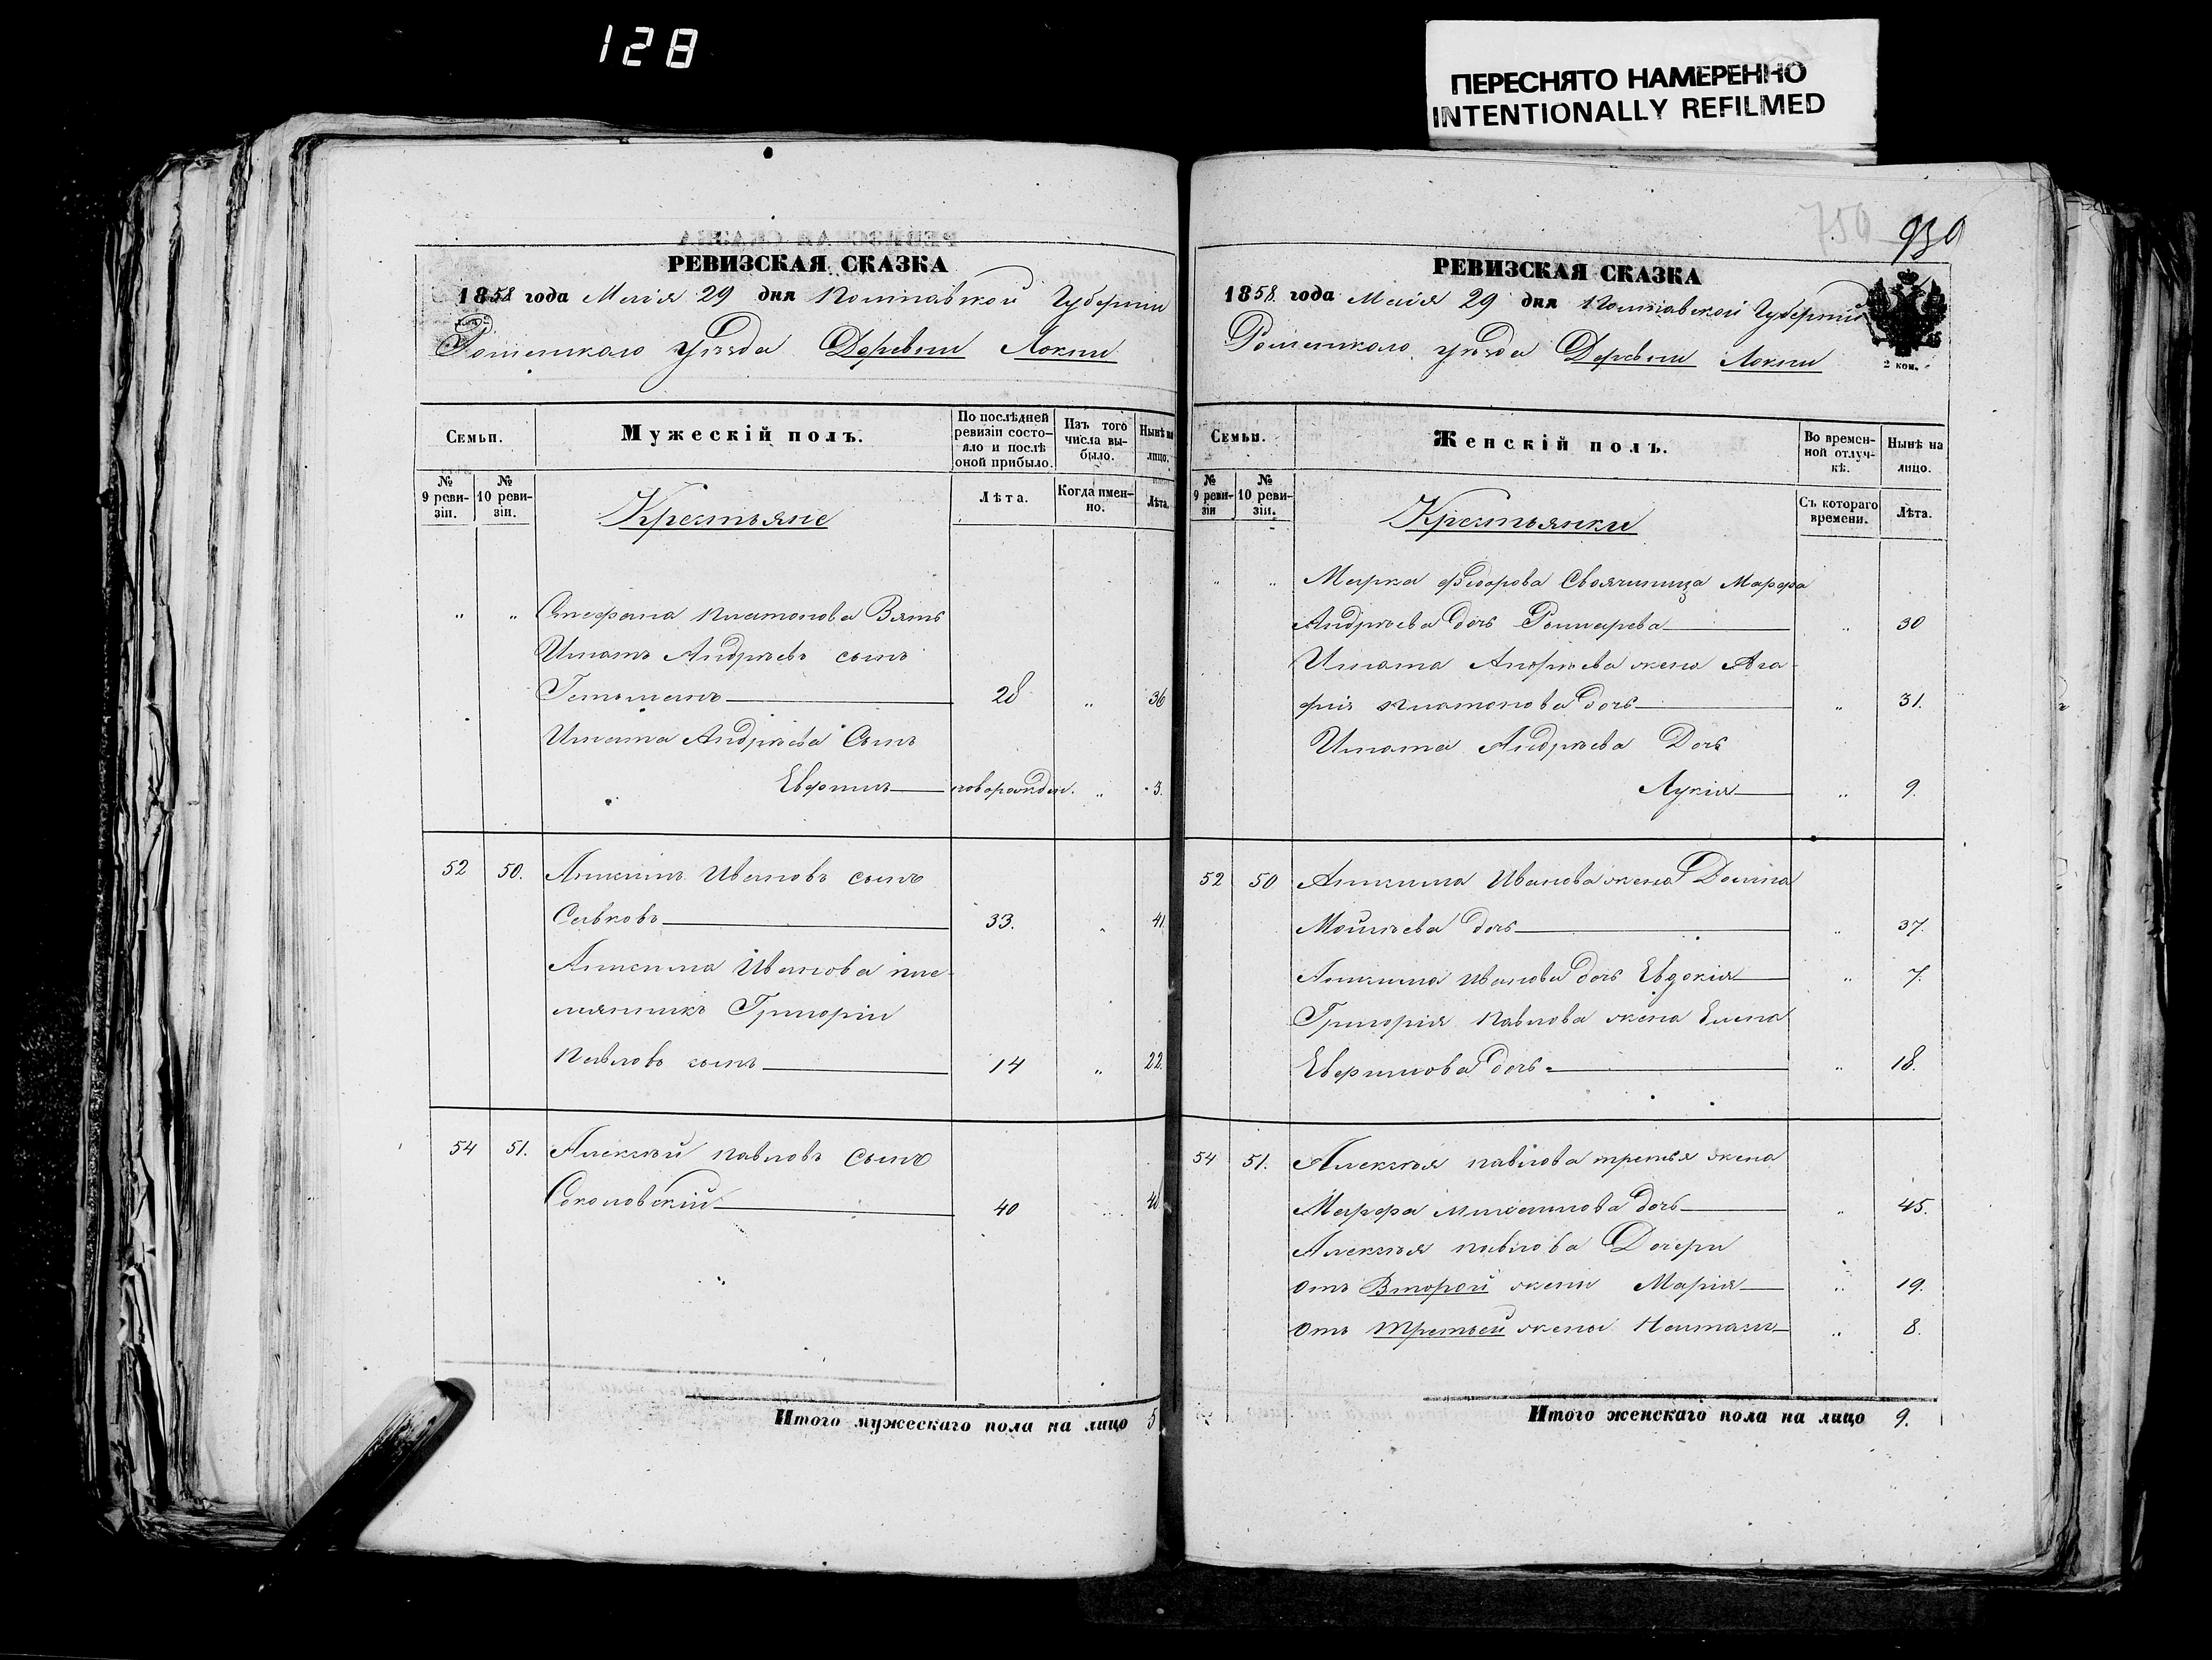 128
ПЕРЕСНЯТО НАМЕРЕННО
INTENTIONALLY REFILMED
РЕВИЗСКАЯ СКАЗКА
1858 года Маія 29 дня Полтавской Губерніи
Роменскаго уѣзда Деревни Локни
Семьи.
Мужескій полъ.
По послѣдней ревизіи состояло и послѣ оной прибыло.
Изъ того числа выбыло.
Нынѣ на лицо.
№ 9 ревизіи.
№ 10 ревизіи.
Крестьяне
Лѣта.
Когда именно.
Лѣта.
" " Стефана Платонова Зять
Игнатъ Андреевъ сынъ
Гетьманъ 28 " 36
Игната Андреева Сынъ
Евфимъ новорожден. " 3.
52 50. Анисимъ Ивановъ сынъ
Савковъ 33. " 41.
Анисима Иванова пле-
мянникъ Григорій
Павловъ сынъ 14 " 22.
54 51. Алексѣй Павловъ Сынъ
Соколовскій 40 48
Итого мужескаго пола на лицо 5
750 930
РЕВИЗСКАЯ СКАЗКА
1858. года Маія 29 дня Полтавской Губерніи
Роменскаго уѣзда Деревни Локни
2 коп.
Семьи.
Женскій полъ.
Во временной отлучкѣ.
Нынѣ на лицо.
№ 9 ревизіи
№ 10 ревизіи.
Крестьянки
Съ котораго времени.
Лѣта.
" " Марка Федорова Своячиница Марфа
Андреева дочь " 30
Игната Андреева жена Ага-
фія Платонова дочь " 31.
Игната Андреева Дочь
Лукія " 9.
52 50 Анисима Иванова жена Домна
Моисѣева дочь " 37.
Анисима Иванова дочь Евдокія " 7.
Григорія Павлова жена Елена
Евфимова дочь " 18.
54 51. Алексѣя Павлова третья жена
Марфа Михайлова дочь " 45.
Алексѣя Павлова Дочери
отъ Второй жены Марія " 19.
отъ Третьей жены Наталія " 8.
Итого женскаго пола на лицо 9.